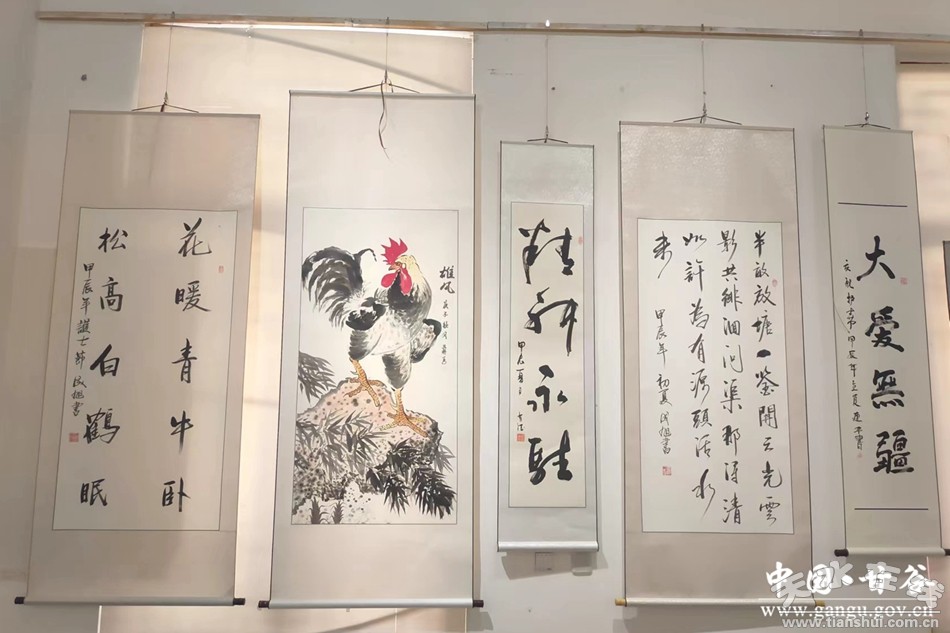 花暖青牛卧
松高白鶴眠
甲辰年護士節
雄风
精神永驻
甲辰夏
半畝放塘一鑒開天光雲
影共徘徊问渠那得清
如許為有源頭活水
来
甲辰年初夏
大愛無疆
甲辰年立夏
中国·甘谷
www.gangu.gov.cn
天水在线
www.tianshui.com.cn